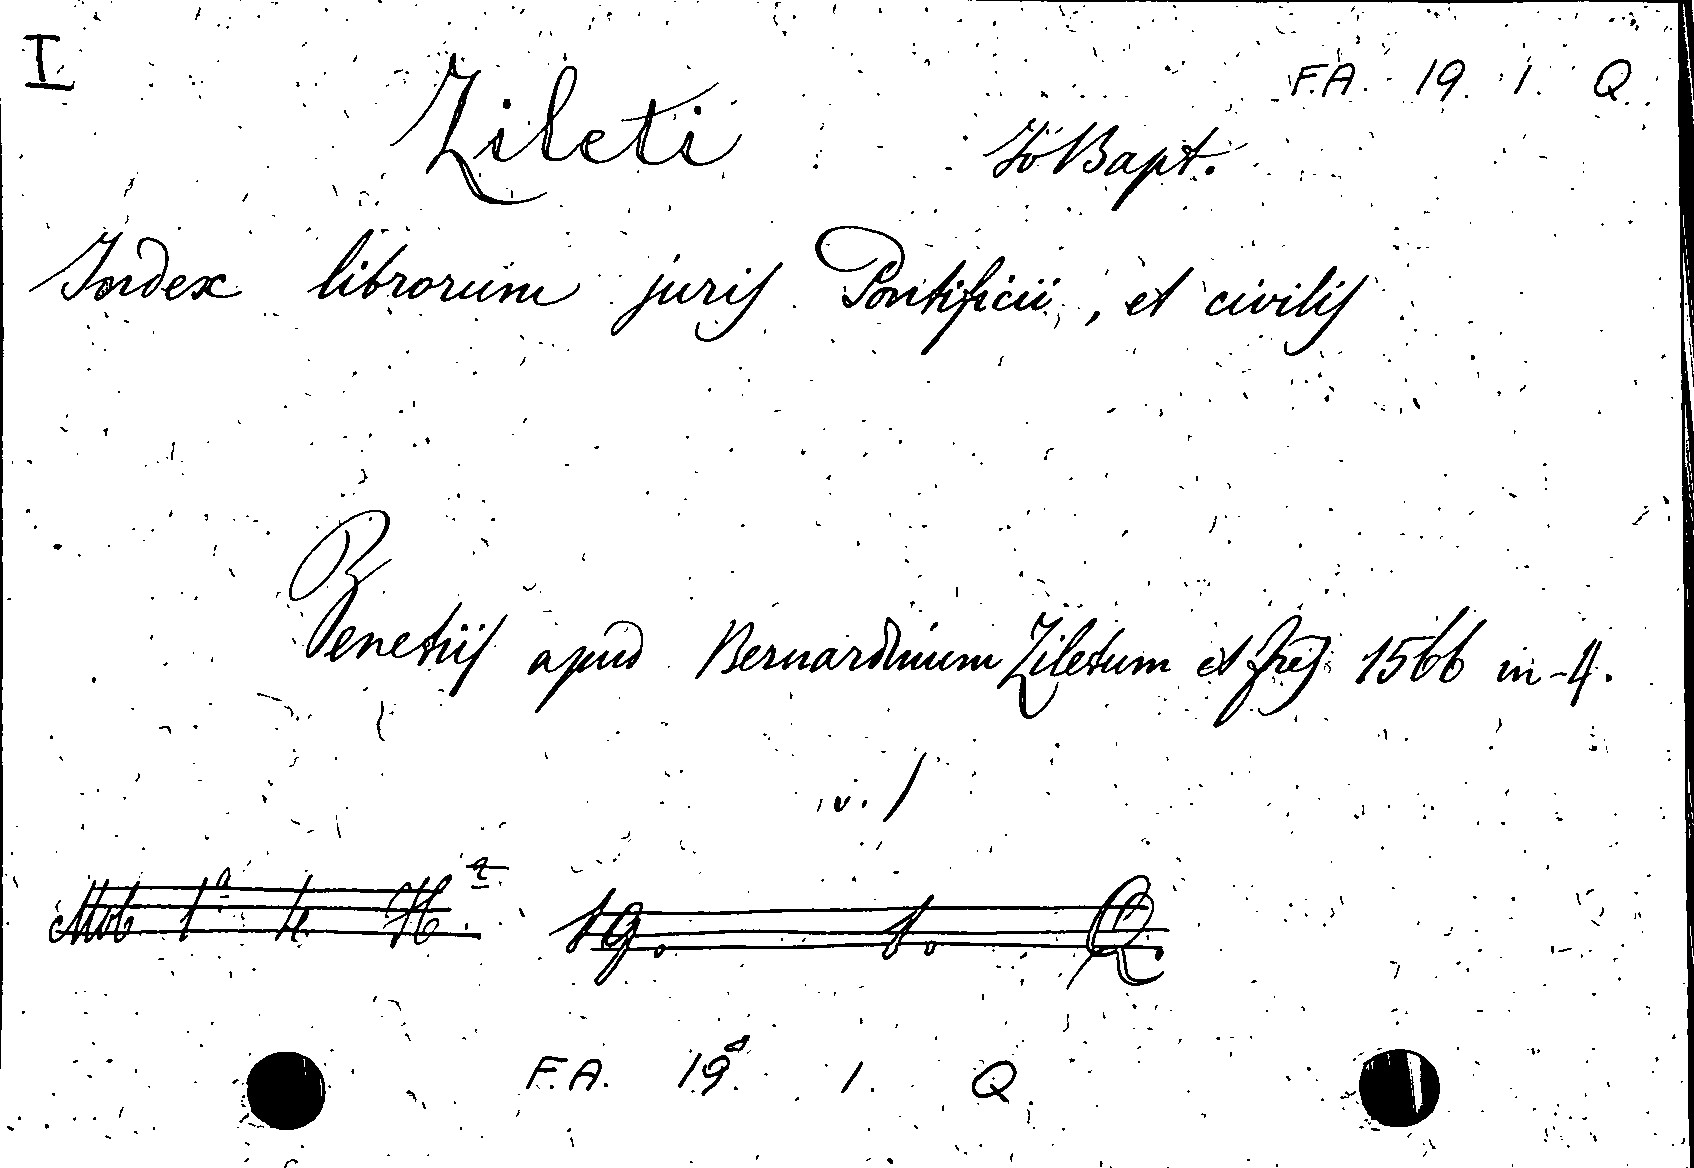 I F.A. 19. 1. Q.
Zileti Jo Bapt.
Index librorum juris Pontificii, et civilis
Venetiis apud Bernardinum Ziletum et fres 1566 in-4.
v. 1
Mob 1ª 4. H. 19. 1. Q.
F.A. 19ª 1. Q